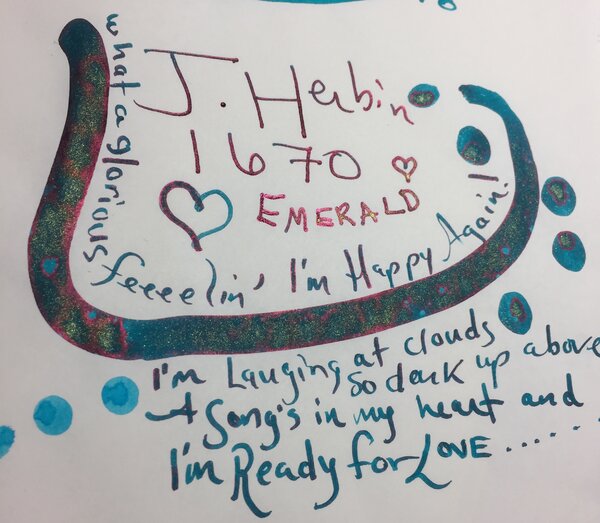 J. Herbin
1670
EMERALD
what a glorious feeeelin' I'm Happy Again!
I'm Lauging at clouds
so dark up above
A Song's in my heart and
I'm Ready for LOVE......